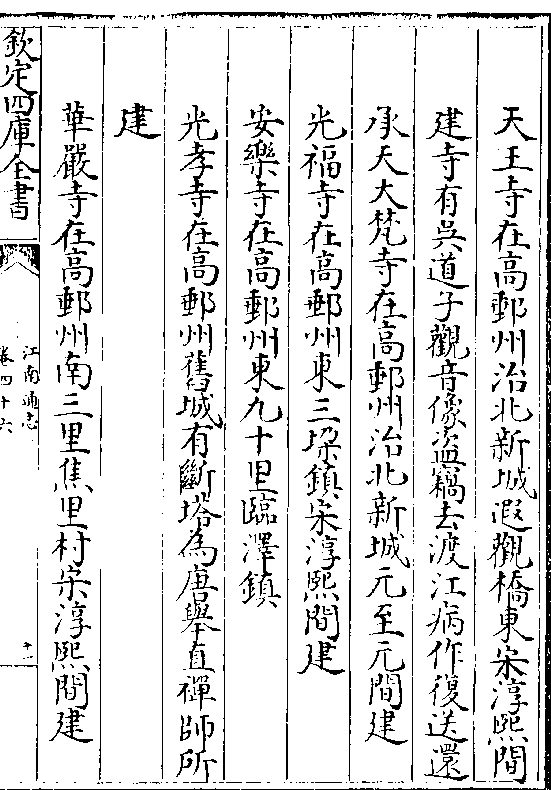 天王寺在高郵州治北新城遐觀橋東宋淳熙間
建寺有吳道子觀音像盜竊去渡江病作復送還
承天大梵寺在高郵州治北新城元至元間建
光福寺在高郵州東三垜鎮宋淳熙間建
安樂寺在高郵州東九十里臨澤鎮
光孝寺在高郵州舊城有斷塔為唐舉直禪師所
建
華嚴寺在高郵州南三里焦里村宋淳熙間建
欽定四庫全書
江南通志
卷四十六
十一